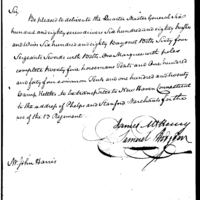 Sir,
Be pleased to deliver to the Quarter Master General Six
hundred and eighty seven Guns Six hundred and eighty
and nine Six hundred and eighty Bayonet Belts, Sixty four
Sergeants Swords with Belts, One Marquee with poles
complete twenty four horsemans Tents and One hundred
and forty four common Tents and one hundred and twenty
Camp Kettles to be transported to New Haven Connecticut
to the address of Phelps and Sanford Merchants for the
use of the 13 Regiment.
James McHenry
Samuel Hodgdon
Mr John Harris